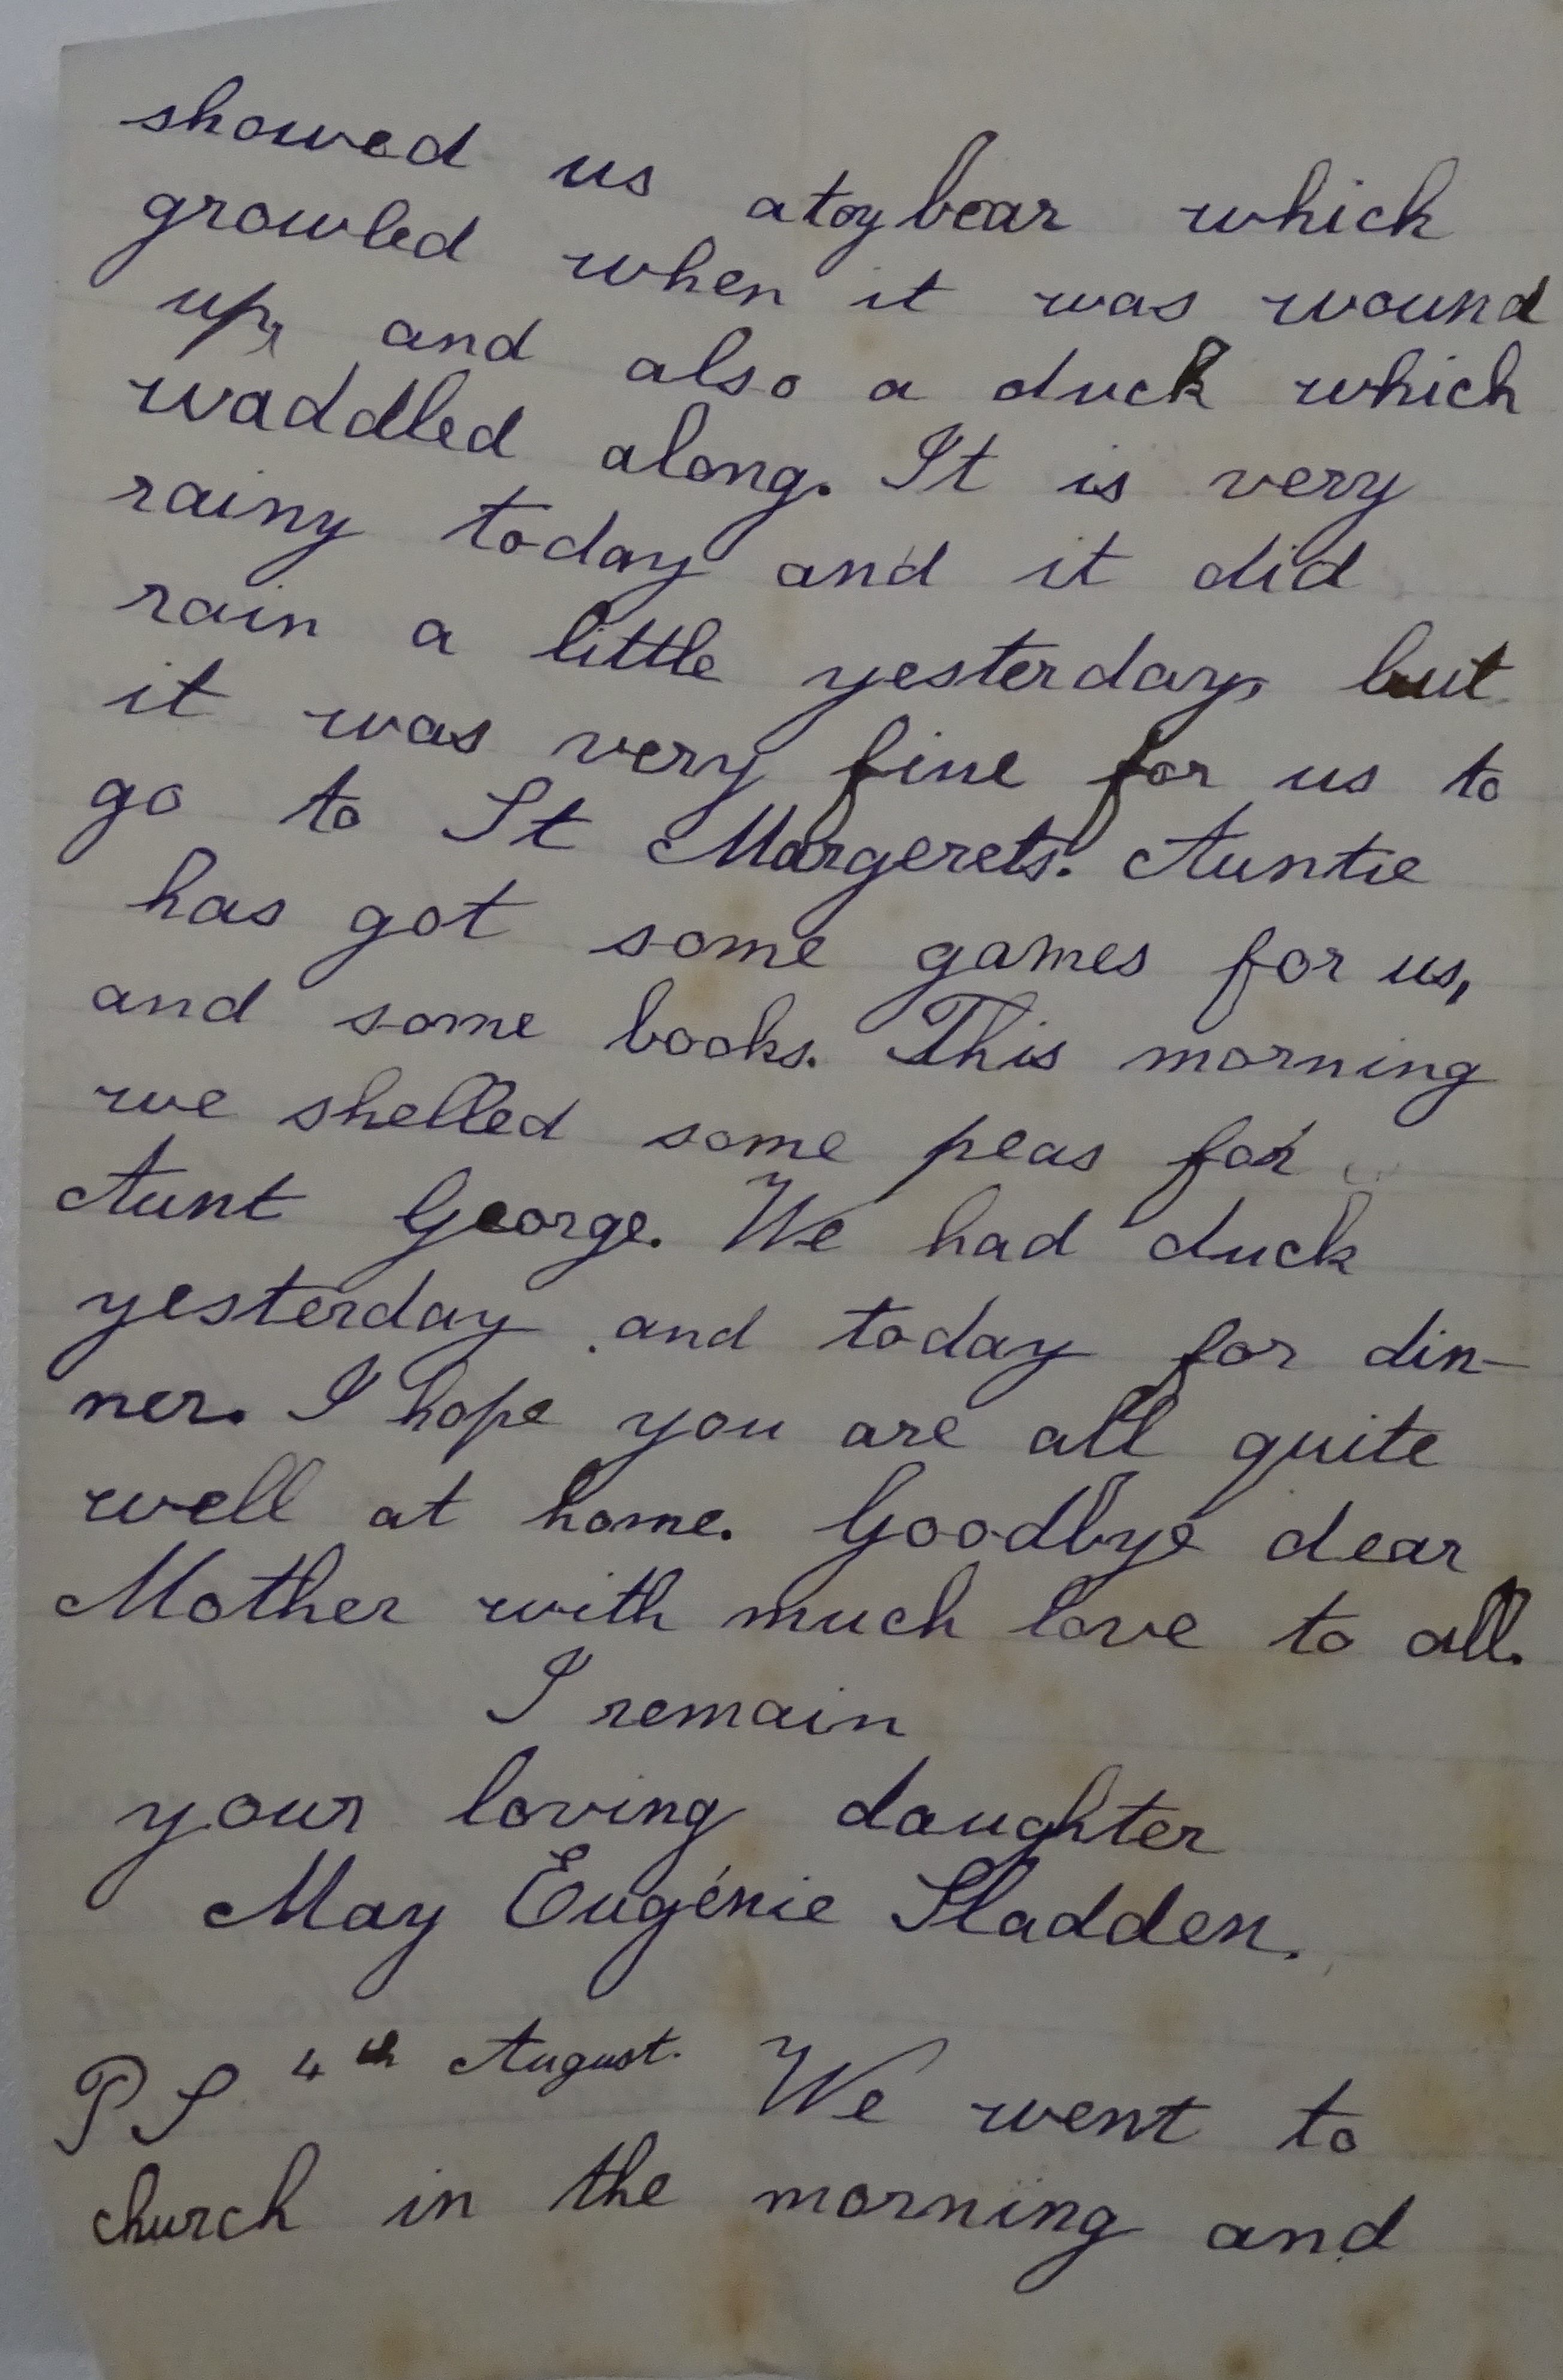 showed us a toy bear which
growled when it was wound
up, and also a duck which
waddled along. It is very
rainy today and it did
rain a little yesterday, but
it was very fine for us to
go to St Margerets. Auntie
has got some games for us,
and some books. This morning
we shelled some peas for
Aunt George. We had duck
yesterday and today for din-
ner. I hope you are all quite
well at home. Goodbye dear
Mother with much love to all.
I remain
your loving daughter
May Eugénie Sladden.
P S 4th August. We went to
church in the morning and